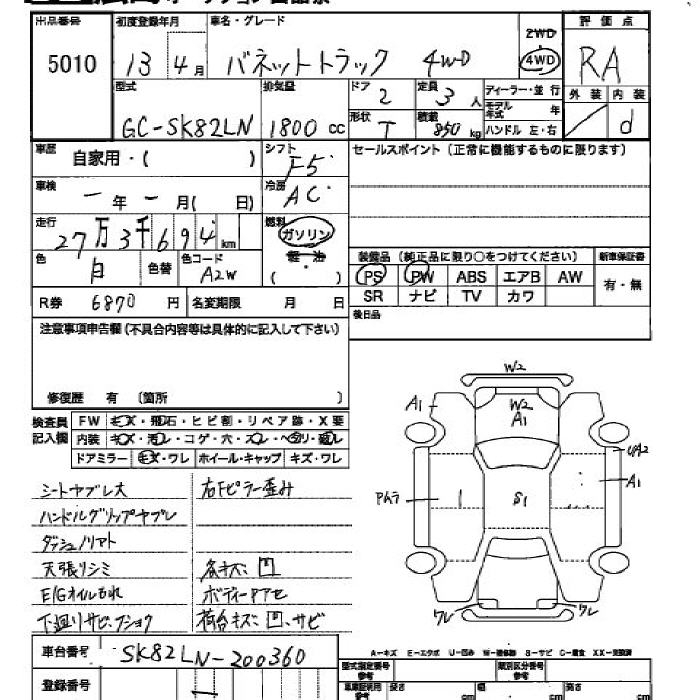 出品番号 初度登録年月 車名・グレード 評価点
5010 13年 4月 バネットトラック 4WD 2WD 4WD RA
型式 排気量 ドア 2 定員 3人 ディーラー・並行 外装 内装
モデル年式 年
GC-SK82LN 1800cc 形状 T 積載 850kg ハンドル 左・右 d
車歴 自家用・( ) シフト F5 セールスポイント(正常に機能するものに限ります)
車検 ー年ー月( 日) 冷房 AC
走行 27万3千694km 燃料 ガソリン
軽・油
色 白 色替 色コード A2W ( ) 装備品(純正品に限り○をつけてください) 新車保証書
PS PW ABS エアB AW 有・無
R券 6870円 名変期限 月 日 SR ナビ TV カワ
注意事項申告欄(不具合内容等は具体的に記入して下さい) 後日品
修復歴 有 〔箇所 〕
検査員記入欄 FW キズ・飛石・ヒビ割・リペア跡・X要
内装 キズ・汚レ・コゲ・穴・スレ・ヘタリ・破レ
ドアミラー キズ・ワレ ホイール・キャップ キズ・ワレ
シートヤブレ大 右Fピラー歪み
ハンドルグリップヤブレ
ダッシュノリアト
天張りシミ 各キズ凹
E/Gオイルもれ ボディーサアセ
下廻りサビ、フショク 荷台キズ凹、サビ
W2
A1 W2
A1
UA2
A1
Pムラ S1
ワレ ワレ
A-キズ E-エクボ U-凹み W-補修跡 S-サビ C-腐食 XX-交換済
車台番号 SK82LN-200360 型式指定番号 参考 類別区分番号 参考
登録番号 車庫証明用 参考 長さ cm 幅 cm 高さ cm